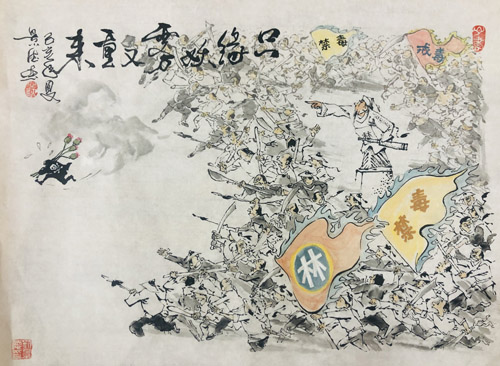 只缘妖雾又重来
己亥年夏
禁毒
戒毒
禁毒
林